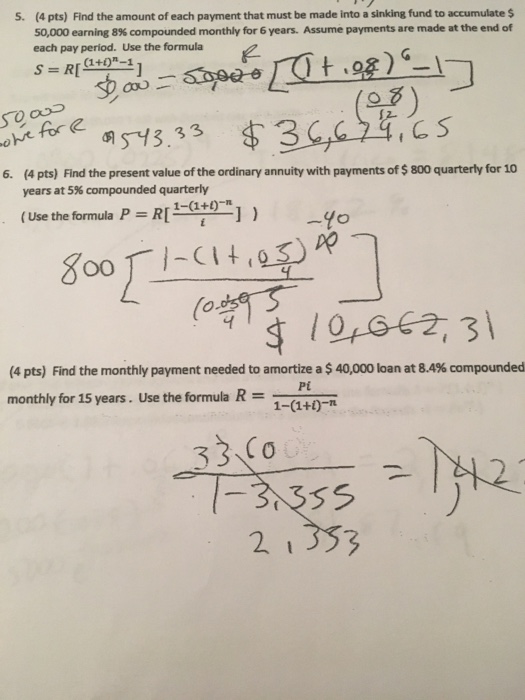 5. (4 pts) Find the amount of each payment that must be made into a sinking fund to accumulate $
50,000 earning 8% compounded monthly for 6 years. Assume payments are made at the end of
each pay period. Use the formula
S = R[(1+i)^n−1 / i]
R
50,000 = 50,000 [(1+.08/12)^6 −1]
(.08/12)
50,000
solve for R 543.33 $ 36,674.65
6. (4 pts) Find the present value of the ordinary annuity with payments of $ 800 quarterly for 10
years at 5% compounded quarterly
( Use the formula P = R[1−(1+i)^−n / i] )
-40
800 [1-(1+.05/4)
4
$ 10,662,31
(4 pts) Find the monthly payment needed to amortize a $ 40,000 loan at 8.4% compounded
monthly for 15 years. Use the formula R = Pi / 1−(1+i)^−n
3360
1-3,355 = 1,42
2,353